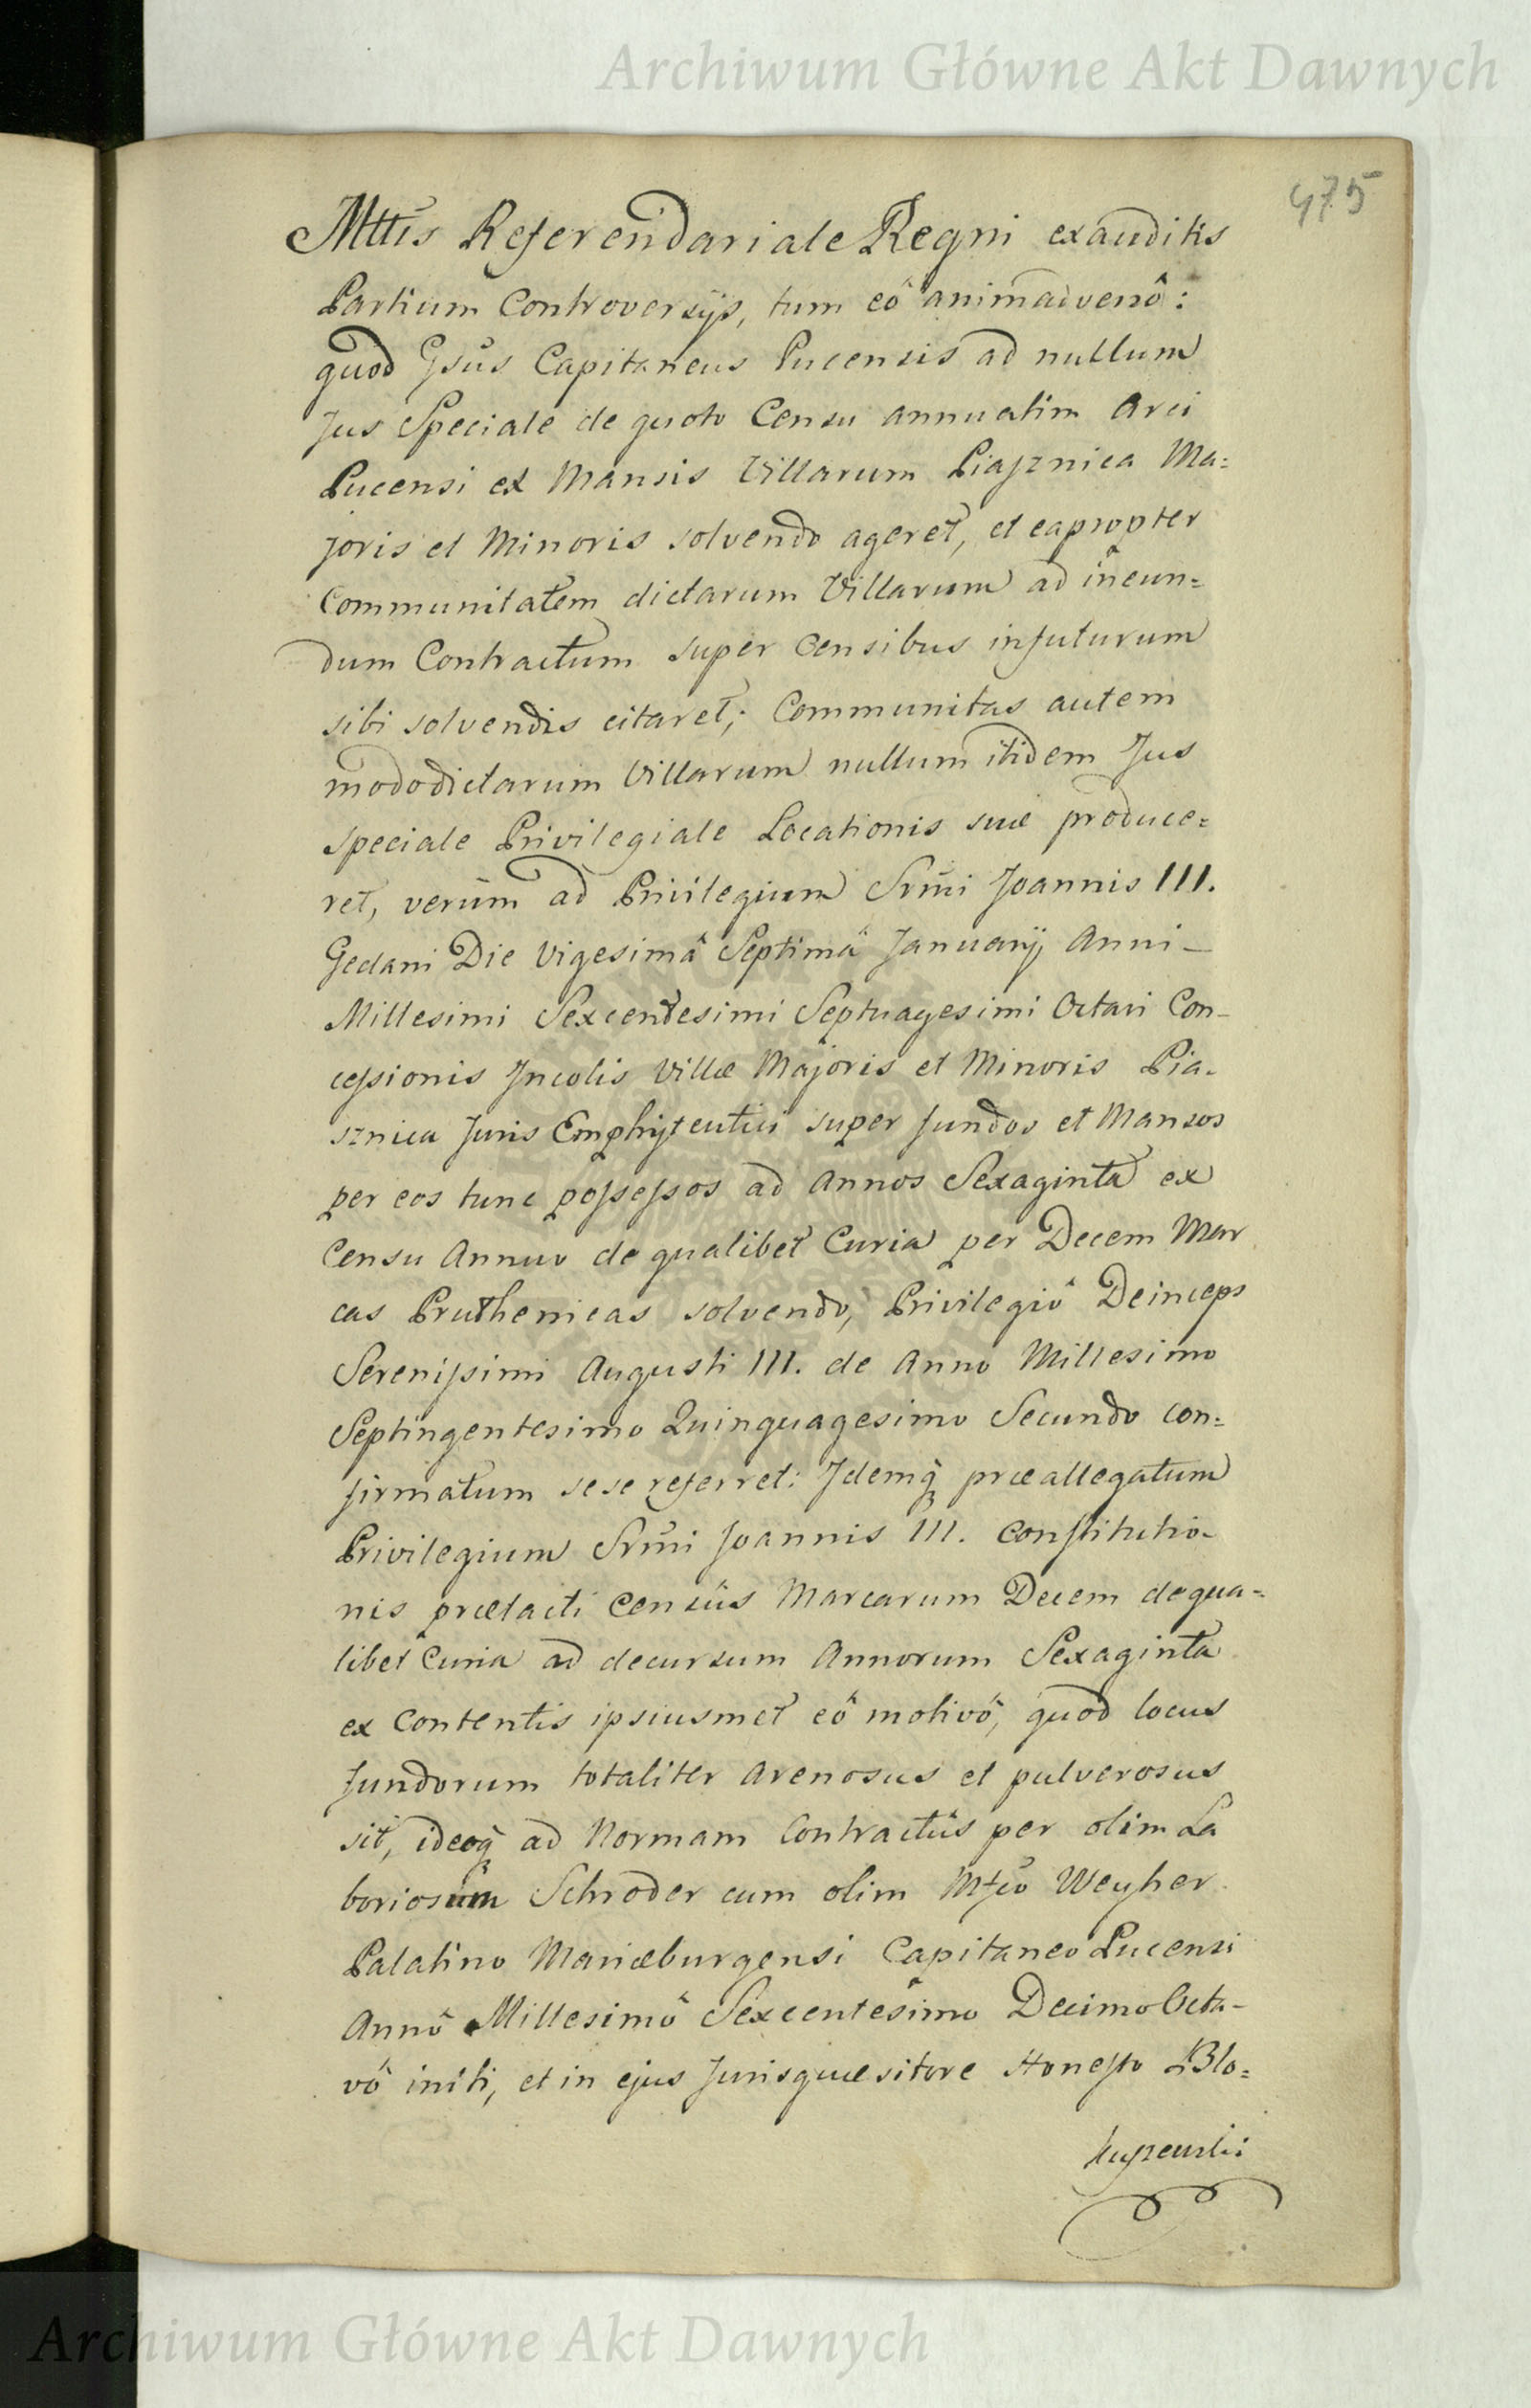 Archiwum Główne Akt Dawnych
475
Mttis Referendariale Regni exauditis
Partium Controversijs, tum eô animadversô:
quod Gsus Capitaneus Pucensis ad nullum
Jus Speciale de quoto Censu annuatim Arci
Pucensi ex Mansis Villarum Piasznica Ma=
joris et Minoris solvendo ageret, et eapropter
Communitatem dictarum Villarum ad ineun=
dum Contractum super Censibus infuturum
sibi solvendis citaret; Communitas autem
mododictarum Villarum nullum itidem Jus
speciale Privilegiale Locationis suæ produce=
ret, verùm ad Privilegium Srmi Joannis III.
Gedani Die Vigesimâ Septimâ Januarij Anni –
Millesimi Sexcentesimi Septuagesimi Octavi Con-
cessionis Incolis Villæ Majoris et Minoris Pia-
sznica Juris Emphyteutici super fundos et Mansos
per eos tunc possessos ad Annos Sexaginta ex
Censu Annuo de qualibet Curia per Decem Mar
cas Pruthenicas solvendo, Privilegiô Deinceps
Serenissimi Augusti III. de Anno Millesimo
Septingentesimo Quinquagesimo Secundo con=
firmatum sese referret: Idemq̀ præallegatum
Privilegium Srmi Joannis III. Constitutio-
nis prætacti Censûs Marcarum Decem dequa=
libet Curia ad decursum Annorum Sexaginta
ex Contentis ipsiusmet eô motivô, quod locus
fundorum totaliter arenosus et pulverosus
sit, ideoq̀ ad Normam Contractûs per olim La
boriosum Schroder cum olim Mfco Weyher
Palatino Mariæburgensi Capitaneo Pucensi
Annô Millesimô Sexcentesimo Decimo Octa-
vô initi, et in ejus Jurisquæsitore Honesto Blo=
Archiwum Główne Akt Dawnych